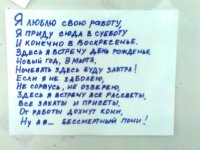 Я люблю свою работу,
Я приду сюда в субботу
И конечно в воскресенье.
Здесь я встречу день рожденье,
Новый год, 8 марта,
Ночевать здесь буду завтра!
Если я не заболею,
Не сорвусь, не озверею,
Здесь я встречу все рассветы,
Все закаты и приветы.
От работы дохнут кони,
Ну а я... Бессмертный пони!